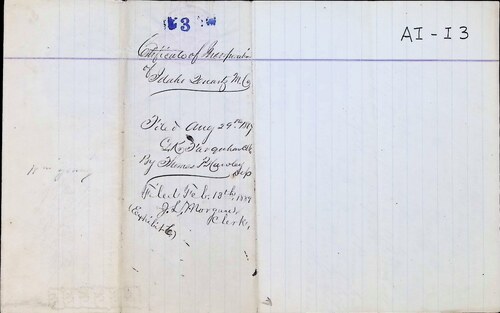 3
AI-13
Certificate of Incorporation
of
Idaho Quartz M Co
Filed Aug 29th 1889
By Thomas Dep
Filed Feb. 13th, 1889
J. L. Morgan,
Clerk,
(Exhibit C)